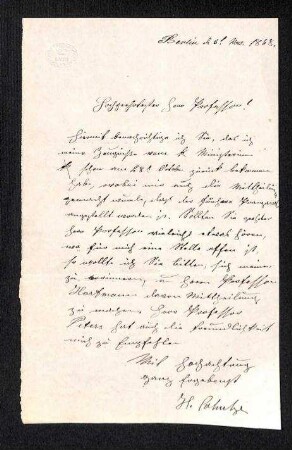 Berlin d. 6t Nov. 18
Hochgeehrtester Herr Professor!
Hiermit benachrichtige ich Sie, daß ich
meine Zeugnisse vom k. Ministerium
schon am 28t Octob. zurück bekommen
habe, wobei mir auch die Mittheilung
gemacht wurde, daß der frühere
angestellt worden ist. Sollten Sie geehrter
Herr Professor vieleicht etwas hören,
wo für mich eine Stelle offen ist,
so wollte ich Sie bitten, sich meiner
zu erinnern, u. Herrn Professor
Hartmann davon Mittheilung
zu machen. Herr Professor
Peters hat auch die Freundlichkeit
mich zu Empfehlen
Mit Hochachtung
ganz Ergebenst
H.